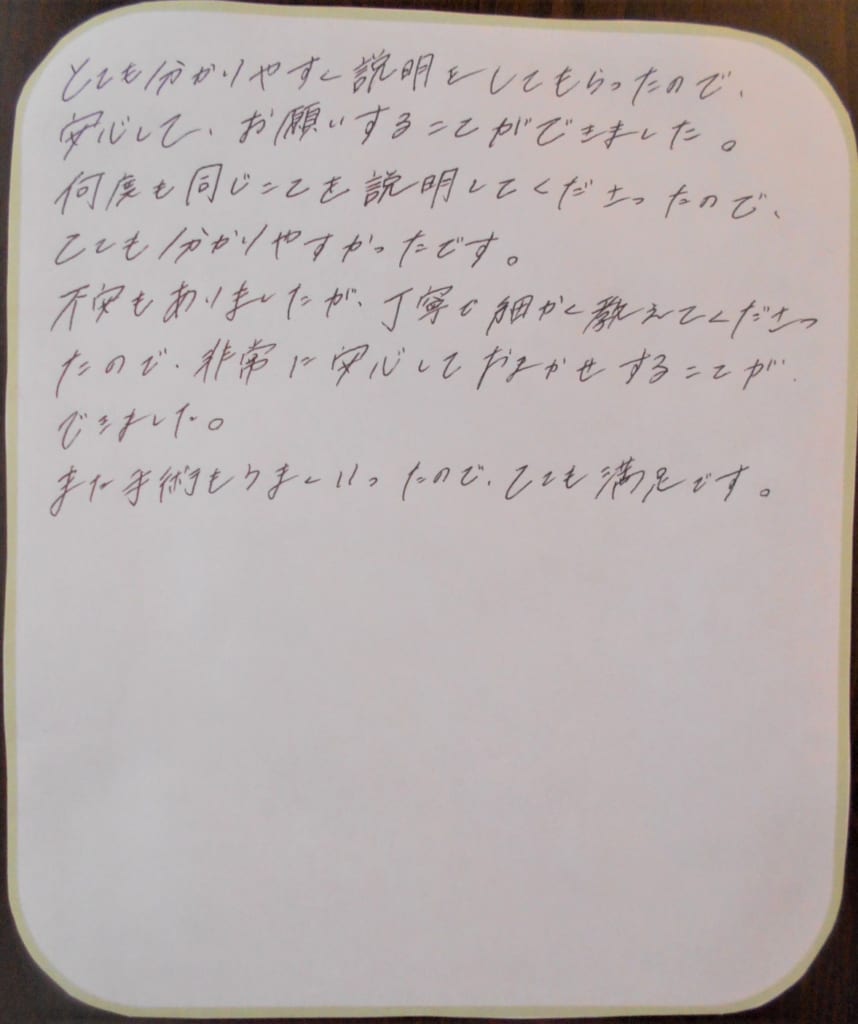 とても分かりやすく説明をしてもらったので、
安心して、お願いすることができました。
何度も同じことを説明してくださったので、
とても分かりやすかったです。
不安もありましたが、丁寧で細かく教えてくださっ
たので、非常に安心しておまかせすることが
できました。
また手術もうまくいったので、とても満足です。